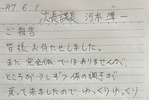 R7.6.1
次長課長 河本準一
ご報告
皆様お待たせしました。
まだ完全体ではありませんが、
ところが少しずつ体の調子が
戻って来ましたので ゆっくりゆっくり